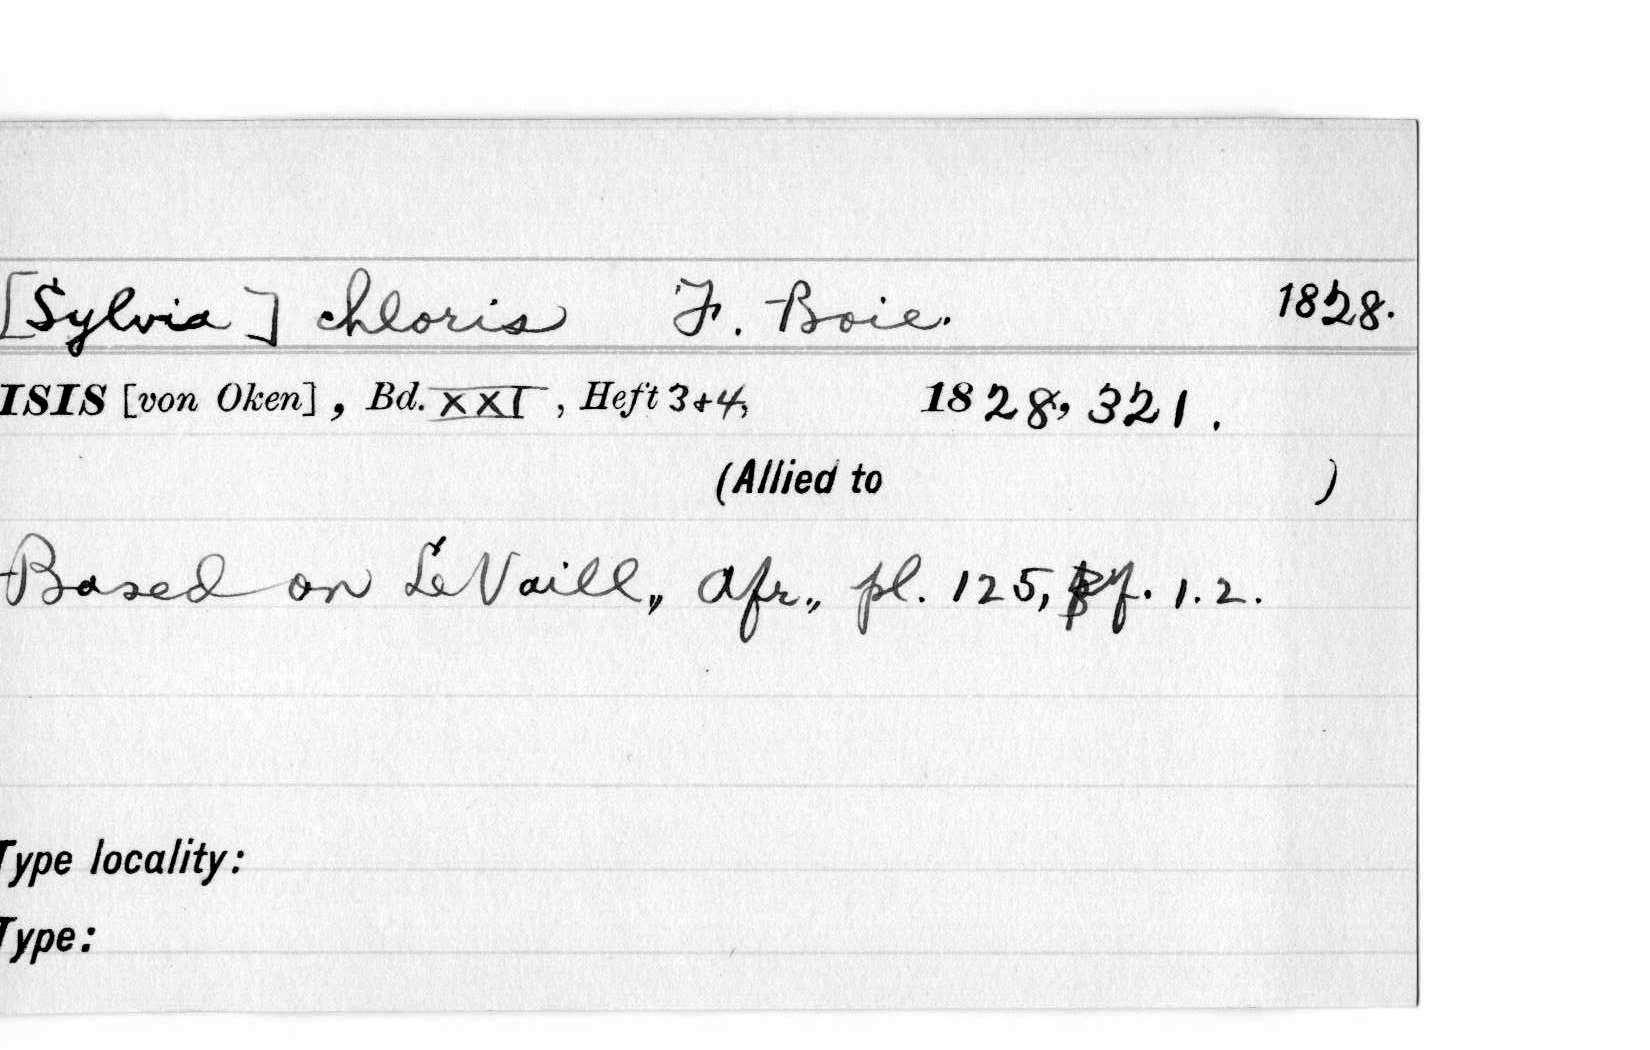 [Sylvia] chloris F. Boie. 1828.
ISIS [von Oken], Bd. XXI, Heft 3+4, 1828, 321.
(Allied to )
Based on LeVaill., Afr., pl. 125, f. 1.2.
Type locality:
Type: